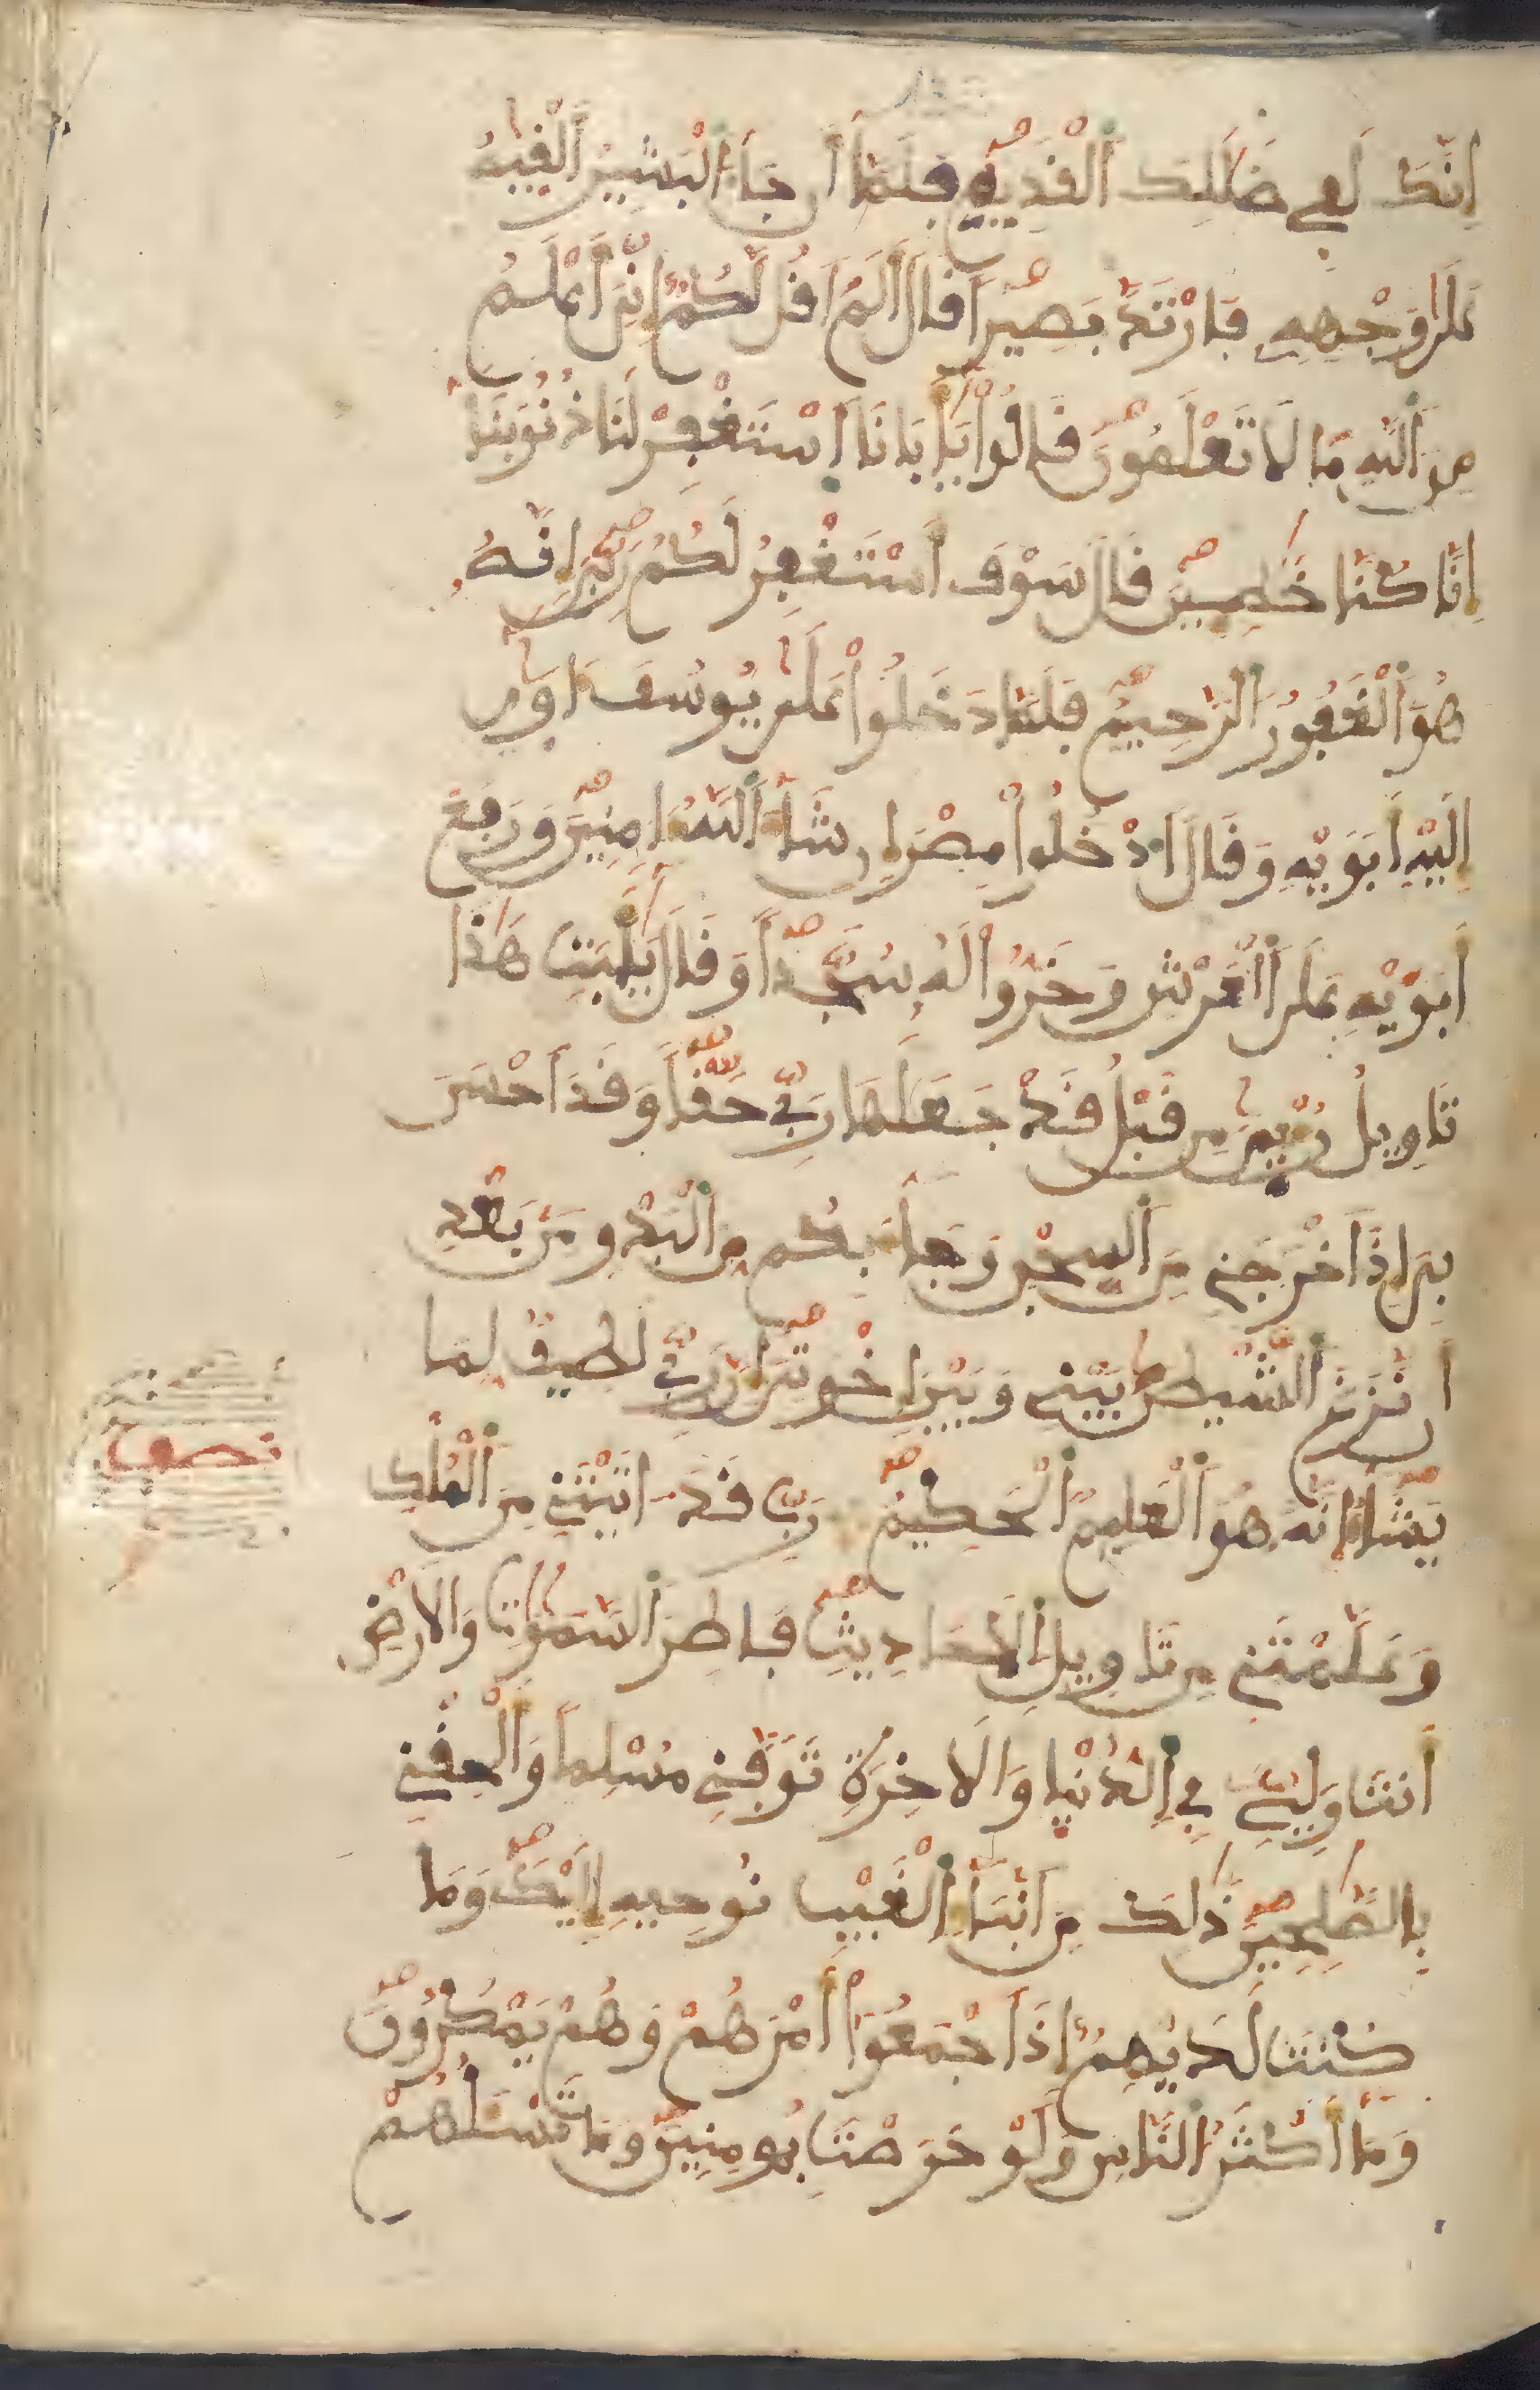 إِنَّكَ لَفِي ضَلَٰلِكَ ٱلْقَدِيمِ فَلَمَّا أَن جَآءَ ٱلْبَشِيرُ أَلْقَيٰهُ
عَلَىٰ وَجْهِهِۦ فَارْتَدَّ بَصِيراً قَالَ أَلَمَ اَقُل لَّكُمُۥ إِنِّيَ أَعْلَمُ
مِنَ ٱللَّهِ مَا لَا تَعْلَمُونَ قَالُواْ يَٰٓأَبَانَا ٱسْتَغْفِرْ لَنَا ذُنُوبَنَآ
إِنَّا كُنَّا خَٰطِـِٕينَ قَالَ سَوْفَ أَسْتَغْفِرُ لَكُمْ رَبِّيَ إِنَّهُۥ
هُوَ ٱلْغَفُورُ ٱلرَّحِيمُ فَلَمَّا دَخَلُواْ عَلَىٰ يُوسُفَ ءَاوَىٰٓ
إِلَيْهِ أَبَوَيْهِ وَقَالَ ٱدْخُلُواْ مِصْرَ إِن شَآءَ ٱللَّهُ ءَامِنِينَ وَرَفَعَ
أَبَوَيْهِ عَلَى ٱلْعَرْشِ وَخَرُّواْ لَهُۥ سُجَّداً وَقَالَ يَٰٓأَبَتِ هَٰذَا
تَاوِيلُ رُءْيَٰيَ مِن قَبْلُ قَدْ جَعَلَهَا رَبِّي حَقّاً وَقَدَ اَحْسَنَ
بِيَ إِذَ اَخْرَجَنِي مِنَ ٱلسِّجْنِ وَجَآءَ بِكُم مِّنَ ٱلْبَدْوِ مِنۢ بَعْدِ
أَن نَّزَغَ ٱلشَّيْطَٰنُ بَيْنِي وَبَيْنَ إِخْوَتِيَ إِنَّ رَبِّي لَطِيفٌ لِّمَا
يَشَآءُ إِنَّهُۥ هُوَ ٱلْعَلِيمُ ٱلْحَكِيمُ رَبِّ قَدَ ءَاتَيْتَنِي مِنَ ٱلْمُلْكِ
نصف
وَعَلَّمْتَنِي مِن تَاوِيلِ ٱلْأَحَادِيثِ فَاطِرَ ٱلسَّمَٰوَٰتِ وَالْأَرْضِ
أَنتَ وَلِيِّۦ فِي ٱلدُّنْيَا وَالْأَخِرَةِ تَوَفَّنِي مُسْلِماً وَأَلْحِقْنِي
بِالصَّٰلِحِينَ ذَٰلِكَ مِنَ أَنۢبَآءِ ٱلْغَيْبِ نُوحِيهِ إِلَيْكَ وَمَا
كُنتَ لَدَيْهِمُۥ إِذَ اَجْمَعُوٓاْ أَمْرَهُمْ وَهُمْ يَمْكُرُونَ
وَمَآ أَكْثَرُ ٱلنَّاسِ وَلَوْ حَرَصْتَ بِمُومِنِينَ وَمَا تَسْـَٔلُهُمْ